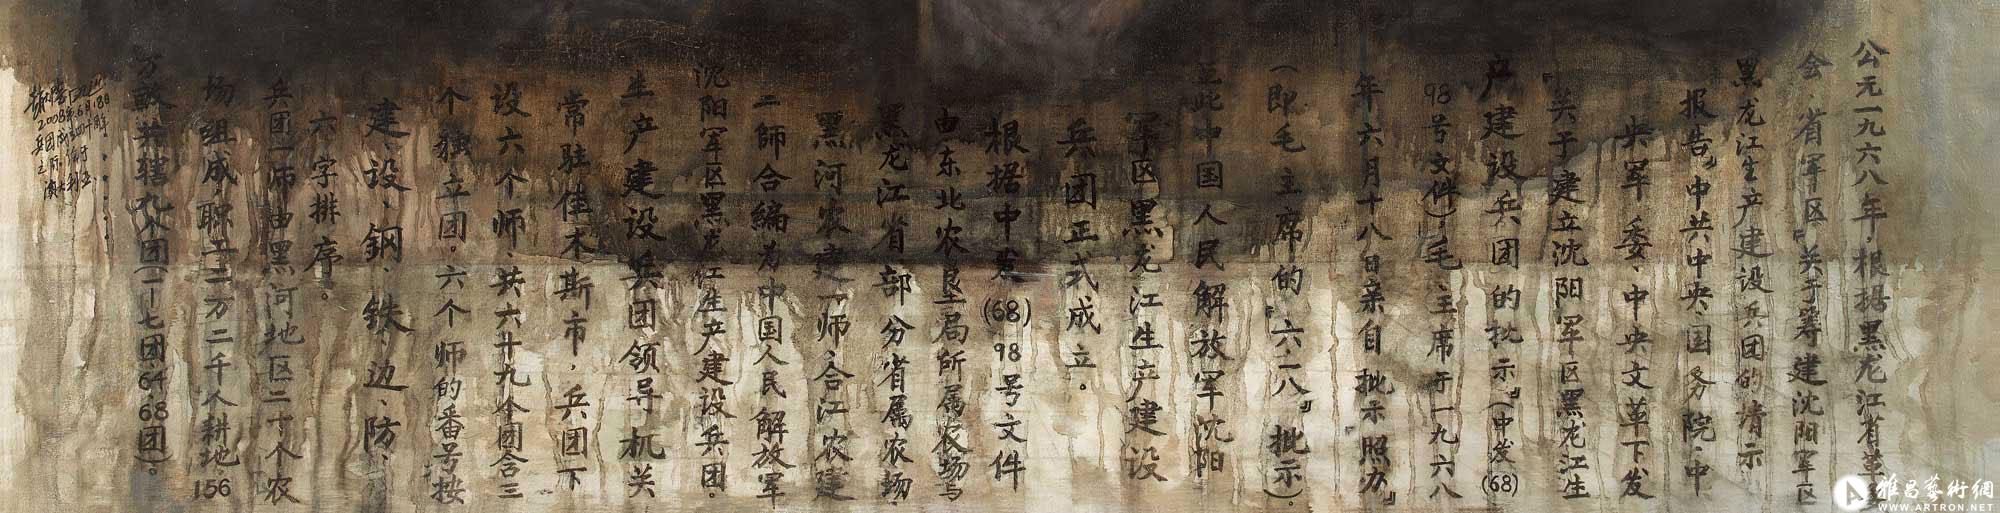 公元一九六八年，根据黑龙江省革委
会、省军区『关于筹建沈阳军区
黑龙江生产建设兵团的请示
报告』中共中央、国务院、中
央军委、中央文革下发
『关于建立沈阳军区黑龙江生
产建设兵团的批示』（中发（68）
98号文件）毛主席于一九六八
年六月十八日亲自批示照办』
（即毛主席的『六一八』批示）。
至此中国人民解放军沈阳
军区黑龙江生产建设
兵团正式成立。
根据中发（68）98号文件
由东北农垦局所属农场与
黑龙江省部分省属农场、
黑河农建一师合江农建
二师合编为中国人民解放军
沈阳军区黑龙江生产建设兵团。
生产建设兵团领导机关
常驻佳木斯市，兵团下
设六个师、共六十九个团含三
个独立团。六个师的番号按
建、设、钢、铁、边、防、
六字排序。
兵团一师由黑河地区二十个农
场组成，职工三万二千人耕地156
万畝共辖九个团（一-七团，64，68团）。
2008年6月18日
兵团成立四十周年
之际
澳大利亚
雅昌藝術網
WWW.ARTRON.NET